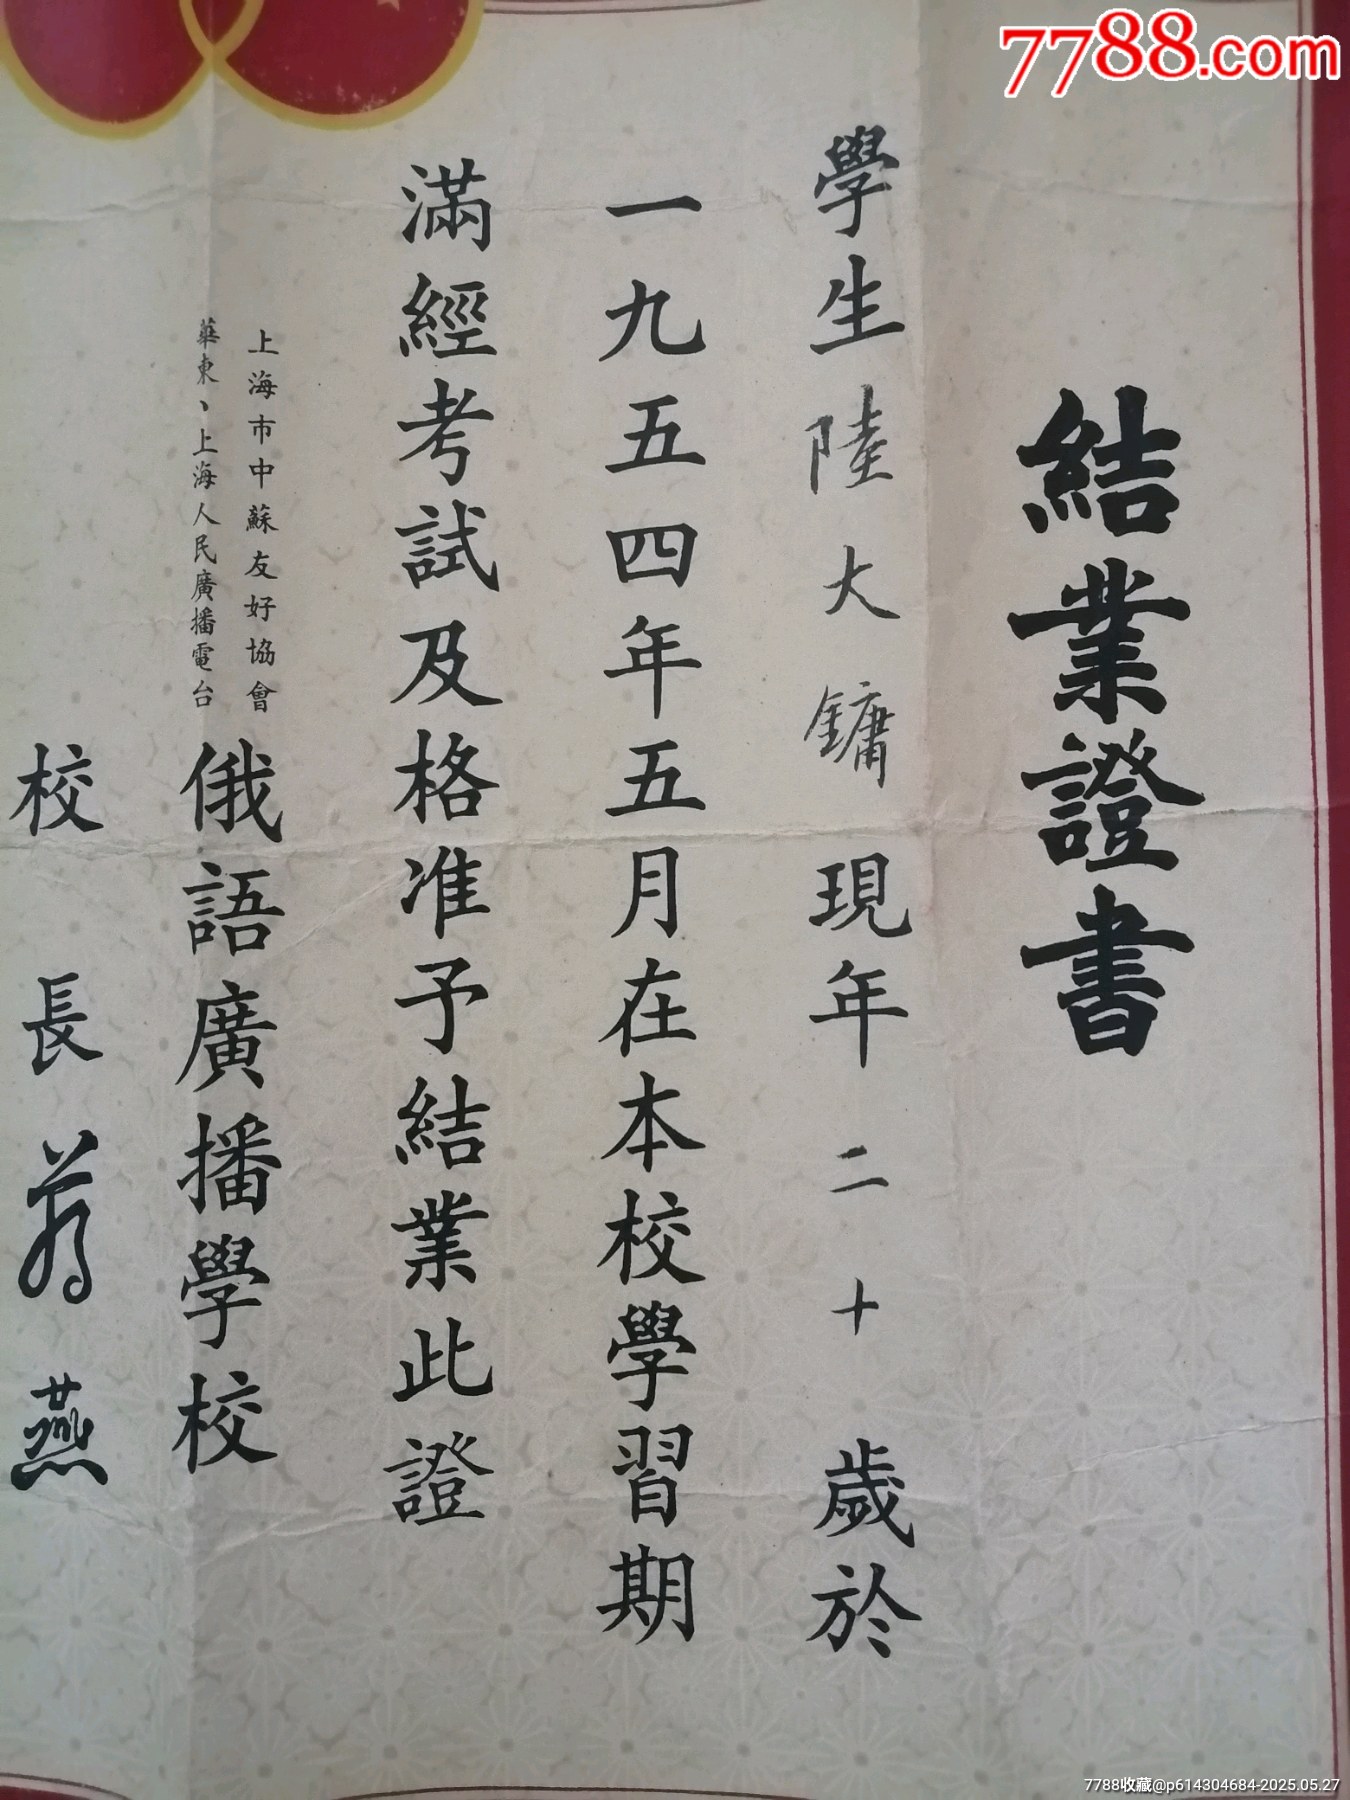 7788.com
結業證書
學生陸大鏞現年二十歲於
一九五四年五月在本校學習期
滿經考試及格准予結業此證
上海市中蘇友好協會
華東、上海人民廣播電台
俄語廣播學校
校長
燕
7788收藏@p614304684-2025.05.27